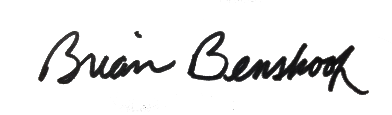 Brian Benshoof